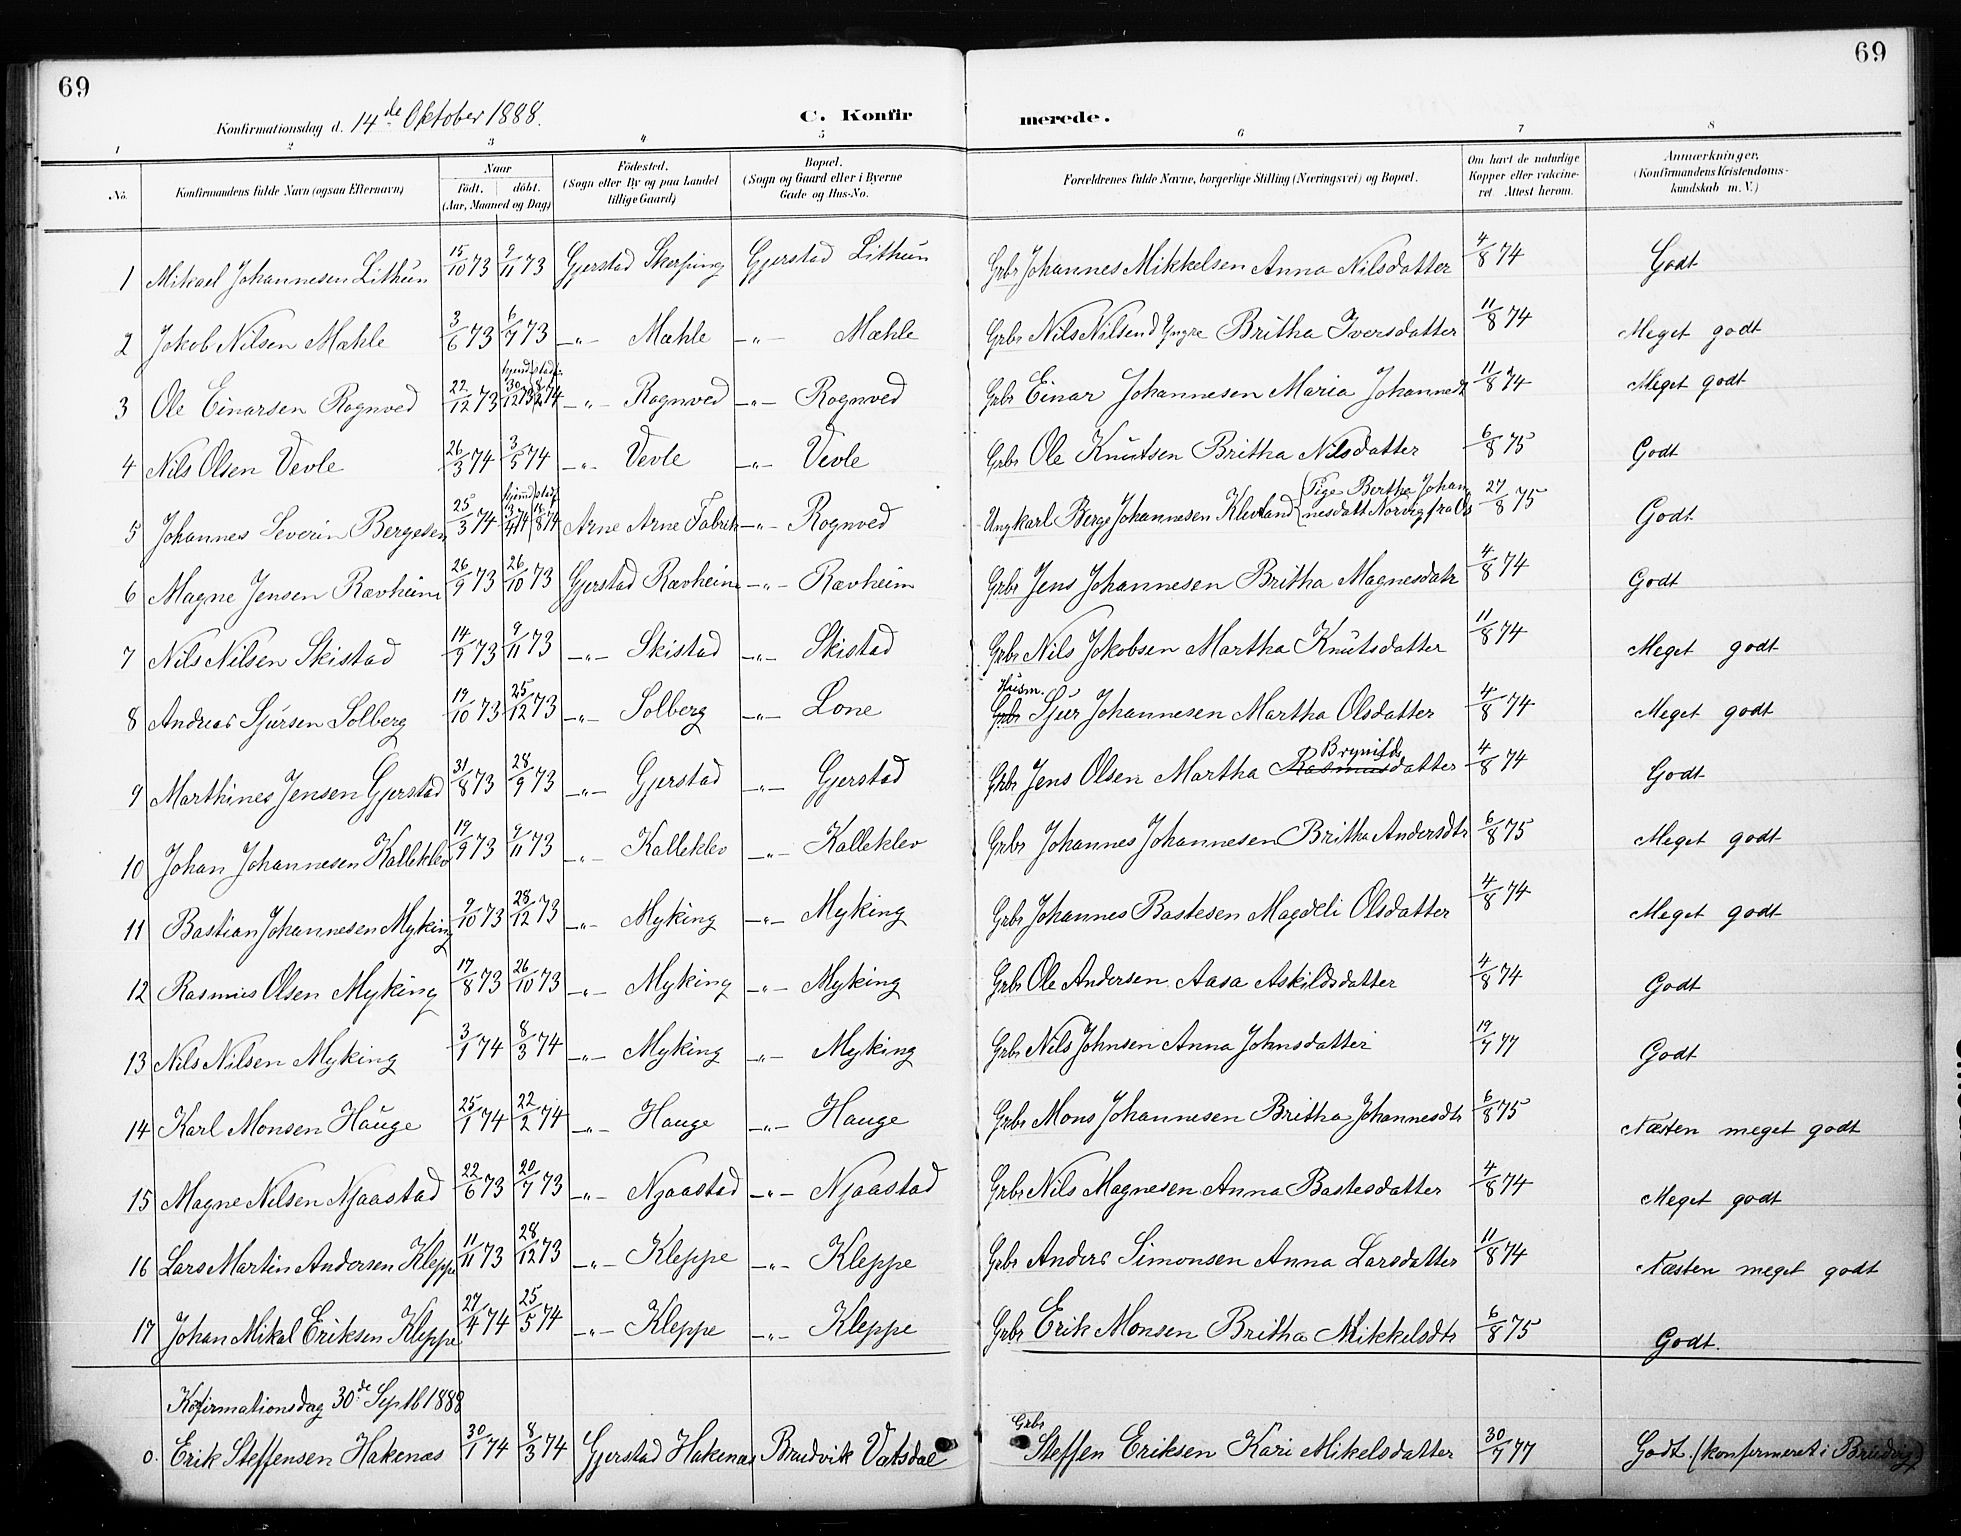 69
69
Konfirmationsdag d. 14de Oktober 1888.
C. Konfirmerede.
1 2 3 4 5 6 7 8
No. Konfirmandens fulde Navn (ogsaa Efternavn) Naar födt. döbt. (Aar, Maaned og Dag) Födested. (Sogn eller By og paa Landet tillige Gaard) Bopæl. (Sogn og Gaard eller i Byerne Gade og Hus-No. Forældrenes fulde Navne, borgerlige Stilling (Næringsvei) og Bopæl. Om havt de naturlige Kopper eller vakcineret. Attest herom. Anmærkninger. (Konfirmandens Kristendomskundskab m. V.)
1 Mikael Johannesen Lithun 15/10 73 9/11 73 Gjerstad Skerping Gjerstad Lithun Grbr Johannes Mikkelsen Anna Nilsdatter 4/8 74 Godt
2 Jakob Nilsen Mæhle 3/6 73 6/7 73 -"- Mæhle -"- Mæhle Grbr Nils Nilsen d Yngre Britha Iversdatter 11/8 74 Meget godt
3 Ole Einarsen Rognved 22/12 73 hjemd 30/12 73 stadf. 8/2 74 -"- Rognved -"- Rognved Grbr Einar Johannesen Maria Johannesdt 11/8 74 Meget godt
4 Nils Olsen Vevle 26/3 74 3/5 74 -"- Vevle -"- Vevle Grbr Ole Knutsen Britha Nilsdatter 6/8 75 Godt
5 Johannes Severin Bergesen 25/3 74 hjemd stadf. Arne Arne Fabrik -"- Rognved Ungkarl Berge Johannesen Klevland Pige Bertha Johannesdatt Norvig fra Os 27/8 75 Godt
6 Magne Jensen Rævheim 26/9 73 26/10 73 Gjerstad Rævheim -"- Rævheim Grbr Jens Johannesen Britha Magnesdatr 4/8 74 Godt
7 Nils Nilsen Skistad 14/9 73 9/11 73 -"- Skistad -"- Skistad Grbr Nils Jakobsen Martha Knutsdatter 11/8 74 Meget godt
8 Andreas Sjursen Solberg 19/10 73 25/12 73 -"- Solberg -"- Lone Grbr Husm. Sjur Johannesen Martha Olsdatter 4/8 74 Meget godt
9 Marthines Jensen Gjerstad 31/8 73 28/9 73 -"- Gjerstad -"- Gjerstad Grbr Jens Olsen Martha Rasmusdatter Brynilds 4/8 74 Godt
10 Johan Johannesen Kalleklev 19/9 73 9/11 73 -"- Kalleklev -"- Kalleklev Grbr Johannes Johannesen Britha Andersdtr 6/8 75 Meget godt
11 Bastian Johannesen Myking 9/10 73 28/12 73 -"- Myking -"- Myking Grbr Johannes Bastesen Magdeli Olsdatter 4/8 74 Meget godt
12 Rasmus Olsen Myking 17/8 73 26/10 73 -"- Myking -"- Myking Grbr Ole Andersen Aasa Askildsdatter 4/8 74 Godt
13 Nils Nilsen Myking 3/1 74 8/3 74 -"- Myking -"- Myking Grbr Nils Johnsen Anna Johnsdatter 19/7 77 Godt
14 Karl Monsen Hauge 25/1 74 22/2 74 -"- Hauge -"- Hauge Grbr Mons Johannesen Britha Johannesdtr 6/8 75 Næsten meget godt
15 Magne Nilsen Njaastad 22/6 73 20/7 73 -"- Njaastad -"- Njaastad Grbr Nils Magnesen Anna Bastesdatter 4/8 74 Meget godt
16 Lars Martin Andersen Kleppe 11/11 73 28/12 73 -"- Kleppe -"- Kleppe Grbr Anders Simonsen Anna Larsdatter 11/8 74 Næsten meget godt
17 Johan Mikal Eriksen Kleppe 27/4 74 25/5 74 -"- Kleppe -"- Kleppe Grbr Erik Monsen Britha Mikkelsdtr 6/8 75 Godt.
Kofirmationsdag 30de Septb 1888
0. Erik Steffensen Hakenæs 30/1 74 8/3 74 Gjerstad Hakenæs Brudvik Vatsdal Grbr Steffen Eriksen Kari Mikelsdatter 30/7 77 Godt. (konfirmeret i Brudvig)